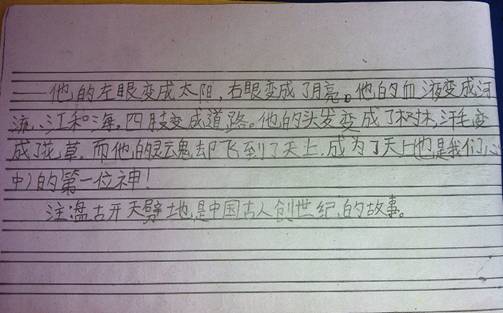 他的左眼变成太阳,右眼变成了月亮。他的血液变成河
流、江和海,四肢变成道路。他的头发变成了树林,汗毛变
成了花、草,而他的灵魂鬼却飞到了天上,成为了天上也是我们(心
中)的第一位神!
注:盘古开天劈地,是中国古人创世纪,的故事。